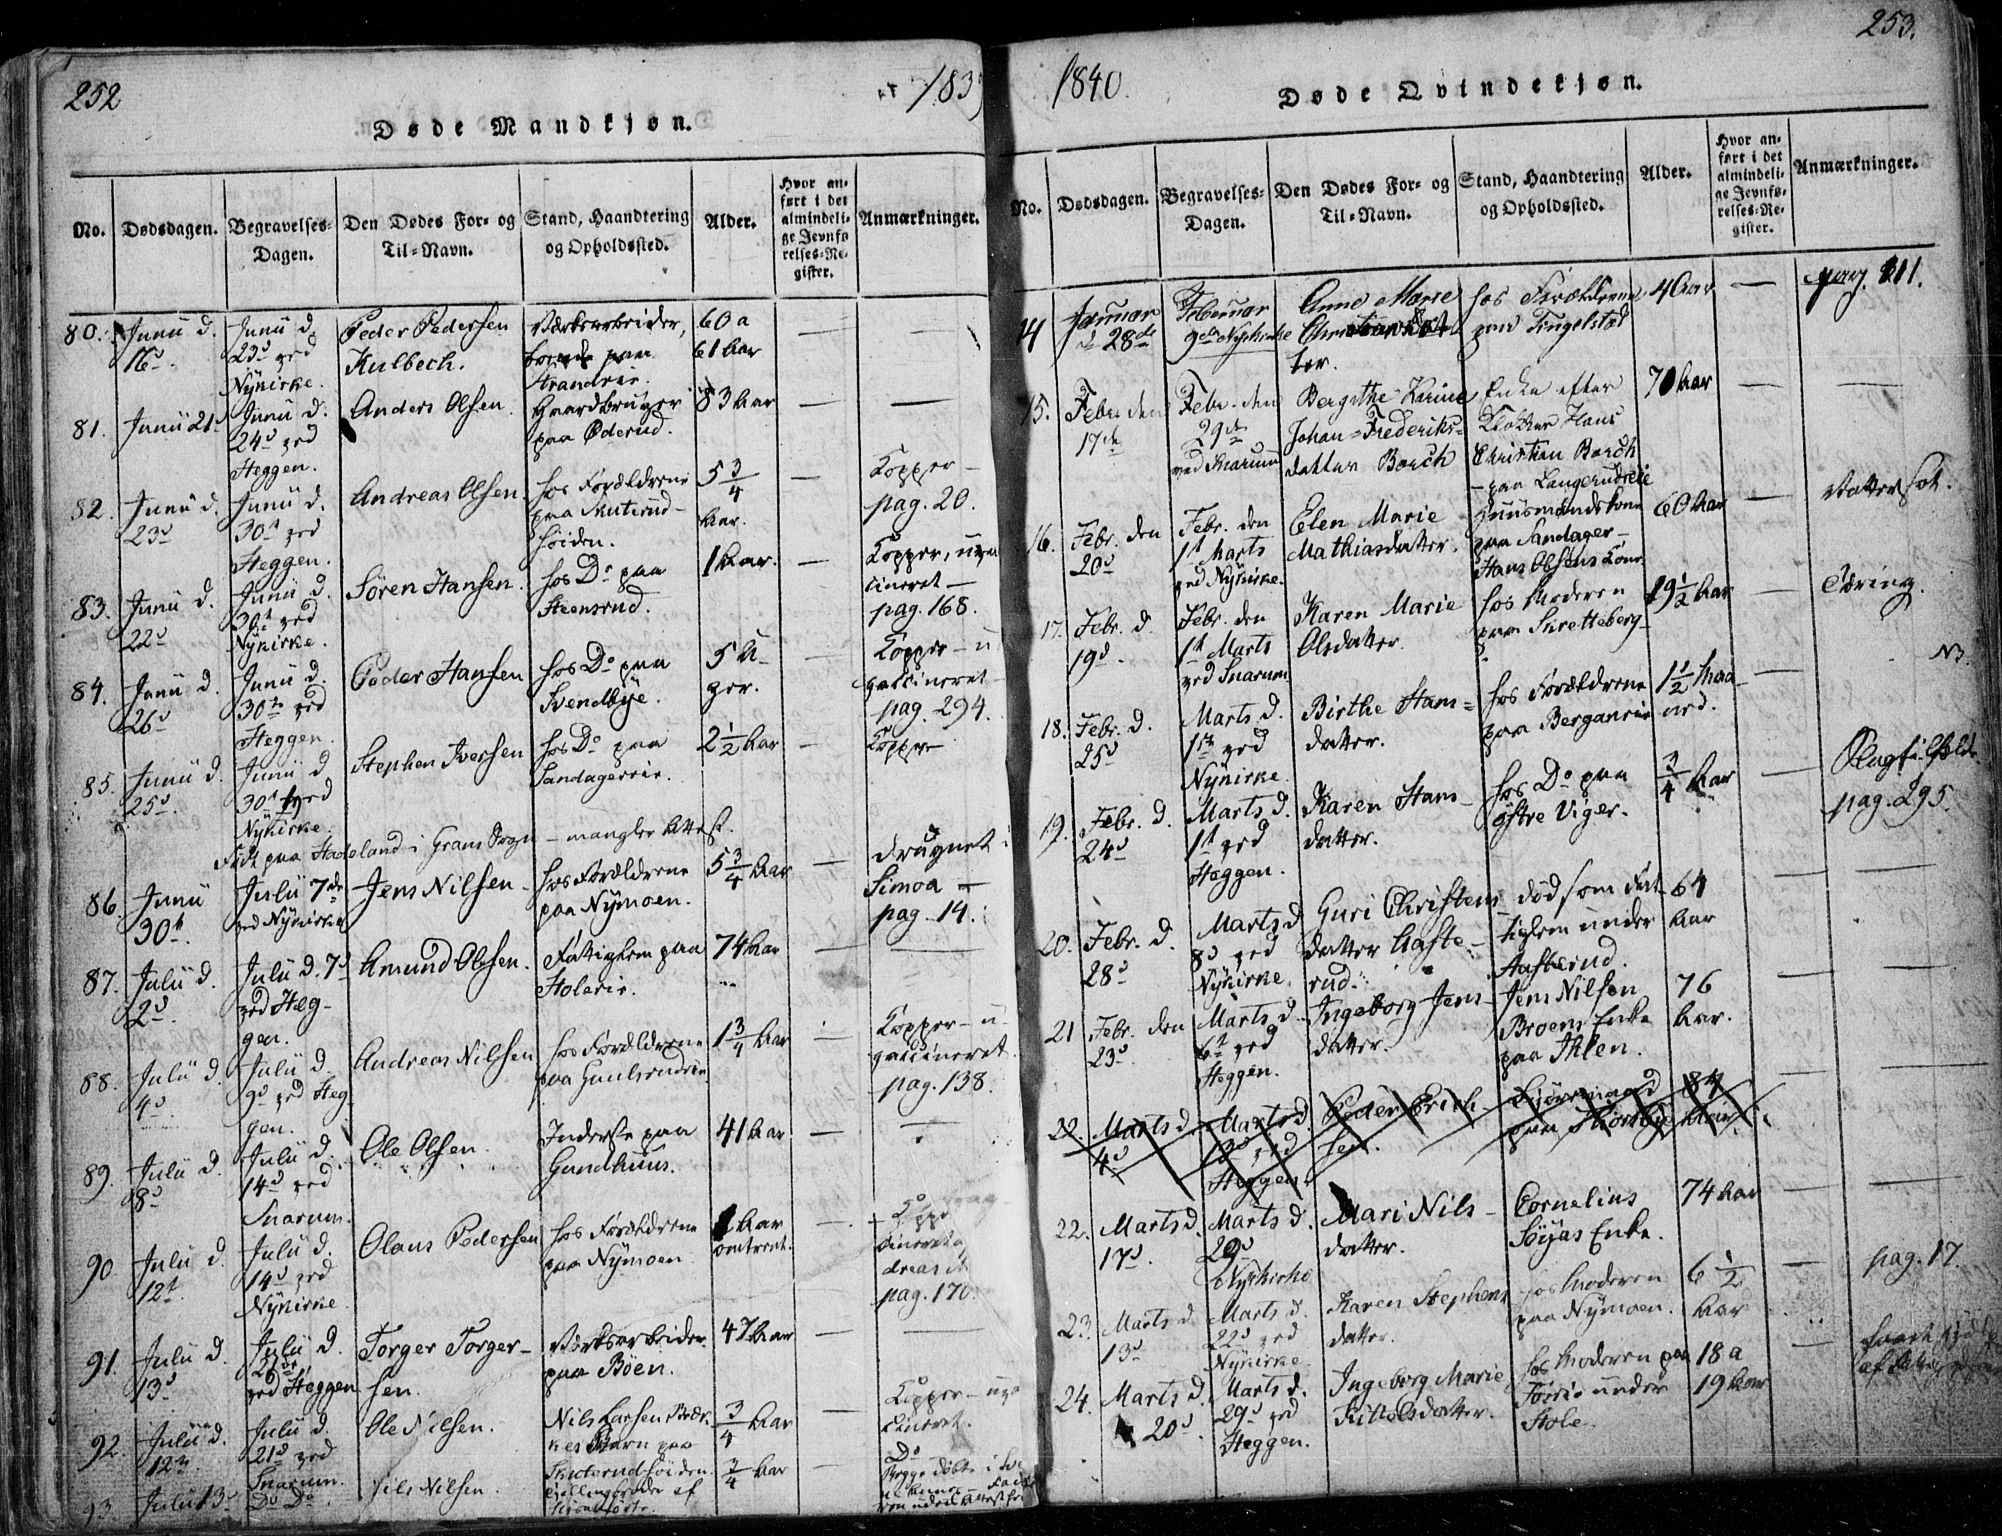 252
1839
Døde Mandkjøn.
No.
Dødsdagen.
Begravelses-
Dagen.
Den Dødes For- og
Til-Navn.
Stand, Haandtering
og Opholdssted.
Alder.
Hvor an-
ført i det
almindeli-
ge Jevnfø
relses-Re-
gister.
Anmærkninger.
80. Junii d. 16d
Junii d. 23d ved Nykirke.
Peder Pedersen Kulbech.
Værksarbeider, boende paa Strandeie.
60 a 61 Aar
81. Junii 21d
Junii d. 24d ved Heggen.
Anders Olsen.
Gaardbruger paa Øderud.
83 Aar
82. Junii d. 23d
Junii d. 30t ved Heggen.
Andreas Olsen
hos Forældrene paa Skuterud-høiden.
5 3/4 Aar.
Kopper - pag. 20.
83. Junii d. 22d
Junii d. 30t ved Nykirke.
Søren Hansen.
hos Do paa Steensrud.
1 Aar.
Kopper, uvacineret - pag. 168.
84. Junii d. 26d
Junii d. 30te ved Heggen.
Peder Hansen
hos Do paa Svendbye.
5 U- ger.
Kopper - u vaccineret - pag. 294.
85. Junii d. 25d
Junii d 30t ved Nykirke
Stephen Iversen
hos Do paa Sandagereie.
2 1/2 Aar
Kopper
Født paa Hadeland i Grans Sogn - mangler Attest.
86. Junii 30t.
Julii 7de ved Nykirke
Jens Nilsen -
hos Forældrene paa Nymoen.
5 3/4 Aar
druknet i Simoa - pag. 14.
87. Julii d. 2d.
Julii d. 7d ved Heg- gen.
Amund Olsen.
Fattiglem paa Holeeie.
74 Aar
88. Julii d. 4d
Julii d. 9d ved Heg- gen.
Andreas Nilsen
hos Forældrene paa Gaulsrudeie.
1 3/4 Aar
Kopper - u- vaccineret. pag. 138.
89. Julii d. 8d
Julii d. 14d ved Snarum.
Ole Olsen.
Inderste paa Gundhuus.
41 Aar
90. Julii d. 12t.
Julii d. 14d ved Nykirke
Olaus Pedersen
hos Forældrene paa Nymoen
1 Aar omtrent.
pag. 170.
91. Julii d. 13d
Julii d. 21de ved Heggen
Torger Torger- sen.
Værksarbeider paa Böen.
47 Aar
92. Julii d. 12te
Julii d. 21d ved Snarum.
Ole Nilsen.
Nils Larsen Bæk- kes Barn paa Skuterudhøiden.
3/4 Aar
Kopper - uvacineret.
93. Julii 13d
Do Do.
Nils Nilsen.
Tvillingbroder af
3/4 Aar
Do
253.
1840.
Døde Qvindekjøn.
No.
Dødsdagen.
Begravelses-
Dagen.
Den Dødes For- og
Til-Navn.
Stand, Haandtering
og Opholdssted.
Alder.
Hvor an-
ført i det
almindeli-
ge Jevnfø-
relses-Re-
gister.
Anmærkninger.
14 Januar d 28de
Februar 9de Nykirke
Anne Marie Christiansdat- ter.
hos Forældrene paa Tingelstad
4 Aar
pag. 111.
15. Febr. den 17de
Febr. den 29de ved Snarum
Bergithe Karine Johan-Frederiks- datter Borch
Enke efter Klokker Hans Christian Borch - paa Langerudeie
70 Aar
16. Febr. den 20d
Febr. den 1t Marts ved Nykirke.
Elen Marie Mathiasdatter.
Huusmandskone paa Sandager - Hans Olsens Kone
60 Aar
Vattersot.
17. Febr. d. 19d.
Febr. den 1t Marts ved Snarum
Karen Marie Olsdatter.
hos Moderen paa Skretteberg-
19 1/2 Aar
Tæring.
18. Febr. d. 25d
Marts d. 1ste ved Nykirke.
Birthe Hans- datter.
hos Forældrene paa Berganeie
1 1/2 Maa- ned.
NB.
19. Febr. d. 24d
Marts d. 1t ved Heggen.
Karen Hans- datter.
hos Do paa østre Viger.
3/4 Aar
pag. 295.
20. Febr. d. 28d
Marts d 8d ved Nykirke.
Guri Christens- datter Aaste- rud.
død som Fat- tiglem under Aasterud.
64 Aar
21 Febr. den 23d
Marts d. 6t ved Heggen.
Ingeborg Jens- datter.
Jens Nilsen Broens Enke paa Ihlen.
76 Aar.
22. Marts d. 4d
Marts d. 13d ved Heggen.
Peder Erich- sen.
paa
84 Aar.
22. Marts d. 17d.
Marts d. 29d Nykirke
Mari Nils- datter.
Cornelius Søyas Enke.
74 Aar
23. Marts d 13d
Marts d. 22d ved Nykirke
Karen Stephens datter.
hos Moderen paa Nymoen.
6 1/2 Aar
pag. 17.
24. Marts d. 20d.
Marts d. 29d ved Heggen.
Ingeborg Marie Kittelsdatter.
hos Moderen paa under Hole.
18 a 19 Aar